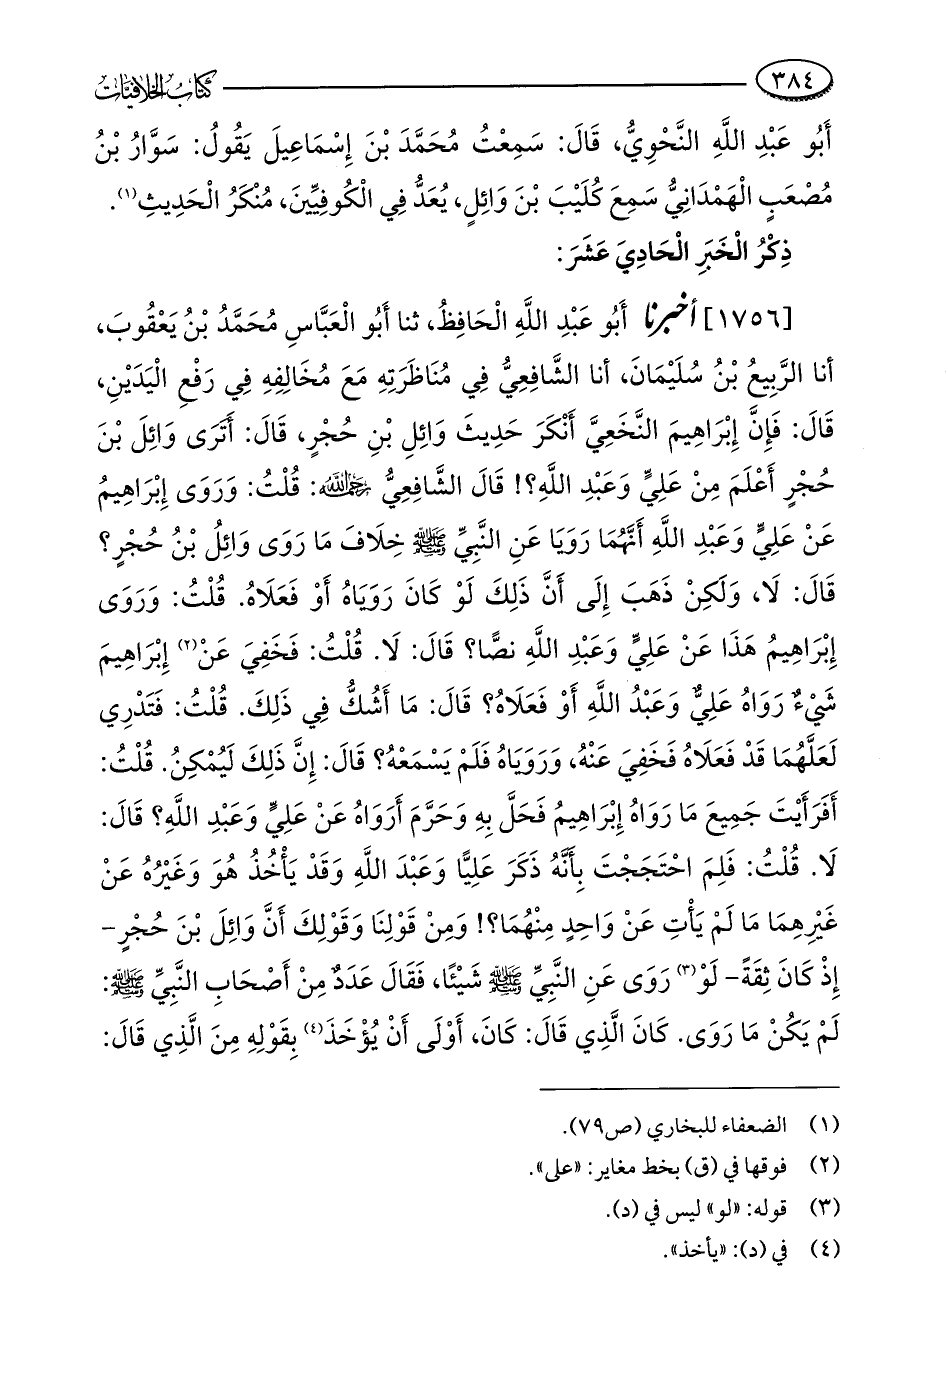 ٣٨٤ كتاب الخلافيات
أَبُو عَبْدِ اللَّهِ النَّحْوِيُّ، قَالَ: سَمِعْتُ مُحَمَّدَ بْنَ إِسْمَاعِيلَ يَقُولُ: سَوَّارُ بْنُ
مُصْعَبٍ الْهَمْدَانِيُّ سَمِعَ كُلَيْبَ بْنَ وَائِلٍ، يُعَدُّ فِي الْكُوفِيِّينَ، مُنْكَرُ الْحَدِيثِ(١).
ذِكْرُ الْخَبَرِ الْحَادِيَ عَشَرَ:
[١٧٥٦] أخبرنا أَبُو عَبْدِ اللَّهِ الْحَافِظُ، ثنا أَبُو الْعَبَّاسِ مُحَمَّدُ بْنُ يَعْقُوبَ،
أنا الرَّبِيعُ بْنُ سُلَيْمَانَ، أنا الشَّافِعِيُّ فِي مُنَاظَرَتِهِ مَعَ مُخَالِفِهِ فِي رَفْعِ الْيَدَيْنِ،
قَالَ: فَإِنَّ إِبْرَاهِيمَ النَّخَعِيَّ أَنْكَرَ حَدِيثَ وَائِلِ بْنِ حُجْرٍ، قَالَ: أَتَرَى وَائِلَ بْنَ
حُجْرٍ أَعْلَمَ مِنْ عَلِيٍّ وَعَبْدِ اللَّهِ؟! قَالَ الشَّافِعِيُّ رحمه الله: قُلْتُ: وَرَوَى إِبْرَاهِيمُ
عَنْ عَلِيٍّ وَعَبْدِ اللَّهِ أَنَّهُمَا رَوَيَا عَنِ النَّبِيِّ ﷺ خِلَافَ مَا رَوَى وَائِلُ بْنُ حُجْرٍ؟
قَالَ: لَا، وَلَكِنْ ذَهَبَ إِلَى أَنَّ ذَلِكَ لَوْ كَانَ رَوَيَاهُ أَوْ فَعَلَاهُ. قُلْتُ: وَرَوَى
إِبْرَاهِيمُ هَذَا عَنْ عَلِيٍّ وَعَبْدِ اللَّهِ نصًّا؟ قَالَ: لَا. قُلْتُ: فَخَفِيَ عَنْ(٢) إِبْرَاهِيمَ
شَيْءٌ رَوَاهُ عَلِيٌّ وَعَبْدُ اللَّهِ أَوْ فَعَلَاهُ؟ قَالَ: مَا أَشُكُّ فِي ذَلِكَ. قُلْتُ: فَتَدْرِي
لَعَلَّهُمَا قَدْ فَعَلَاهُ فَخَفِيَ عَنْهُ، وَرَوَيَاهُ فَلَمْ يَسْمَعْهُ؟ قَالَ: إِنَّ ذَلِكَ لَيُمْكِنُ. قُلْتُ:
أَفَرَأَيْتَ جَمِيعَ مَا رَوَاهُ إِبْرَاهِيمُ فَحَلَّ بِهِ وَحَرَّمَ أَرَوَاهُ عَنْ عَلِيٍّ وَعَبْدِ اللَّهِ؟ قَالَ:
لَا. قُلْتُ: فَلِمَ احْتَجَجْتَ بِأَنَّهُ ذَكَرَ عَلِيًّا وَعَبْدَ اللَّهِ وَقَدْ يَأْخُذُ هُوَ وَغَيْرُهُ عَنْ
غَيْرِهِمَا مَا لَمْ يَأْتِ عَنْ وَاحِدٍ مِنْهُمَا؟! وَمِنْ قَوْلِنَا وَقَوْلِكَ أَنَّ وَائِلَ بْنَ حُجْرٍ -
إِذْ كَانَ ثِقَةً - لَوْ(٣) رَوَى عَنِ النَّبِيِّ ﷺ شَيْئًا، فَقَالَ عَدَدٌ مِنْ أَصْحَابِ النَّبِيِّ ﷺ:
لَمْ يَكُنْ مَا رَوَى. كَانَ الَّذِي قَالَ: كَانَ، أَوْلَى أَنْ يُؤْخَذَ(٤) بِقَوْلِهِ مِنَ الَّذِي قَالَ:
(١) الضعفاء للبخاري (ص٧٩).
(٢) فوقها في (ق) بخط مغاير: «على».
(٣) قوله: «لو» ليس في (د).
(٤) في (د): «يأخذ».